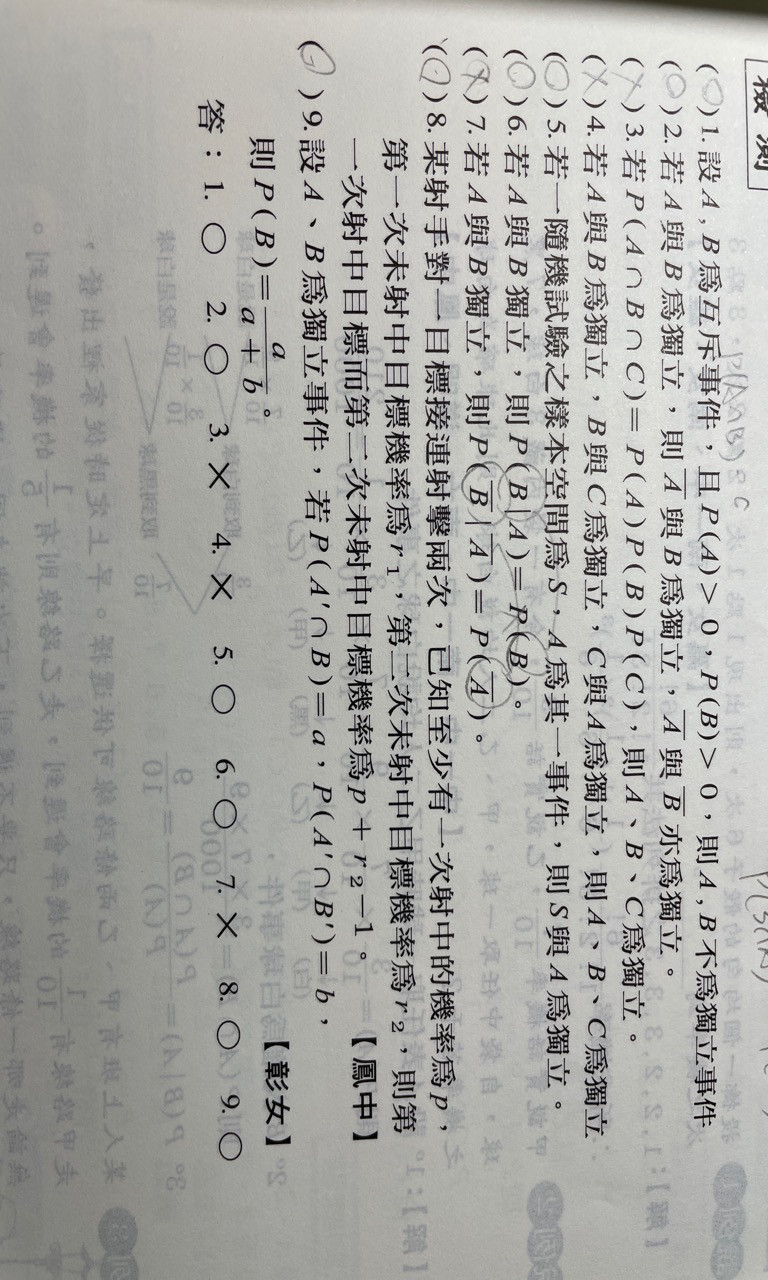 檢測
(○)1. 設A，B為互斥事件，且P(A)>0，P(B)>0，則A，B不為獨立事件
(○)2. 若A與B為獨立，則A̅與B為獨立，A̅與B̅亦為獨立。
(×)3. 若P(A∩B∩C)=P(A)P(B)P(C)，則A、B、C為獨立。
(×)4. 若A與B為獨立，B與C為獨立，C與A為獨立，則A、B、C為獨立
(○)5. 若一隨機試驗之樣本空間為S，A為其一事件，則S與A為獨立。
(○)6. 若A與B獨立，則P(B|A)=P(B)。
(×)7. 若A與B獨立，則P(B̅|A̅)=P(A̅)。
(○)8. 某射手對一目標接連射擊兩次，已知至少有一次射中的機率為p，
第一次未射中目標機率為r₁，第二次未射中目標機率為r₂，則第
一次射中目標而第二次未射中目標機率為p+r₂-1。【鳳中】
(○)9. 設A、B為獨立事件，若P(A′∩B)=a，P(A′∩B′)=b，
則P(B)=a/(a+b)。【彰女】
答：1. ○ 2. ○ 3. × 4. × 5. ○ 6. ○ 7. × 8. ○ 9. ○